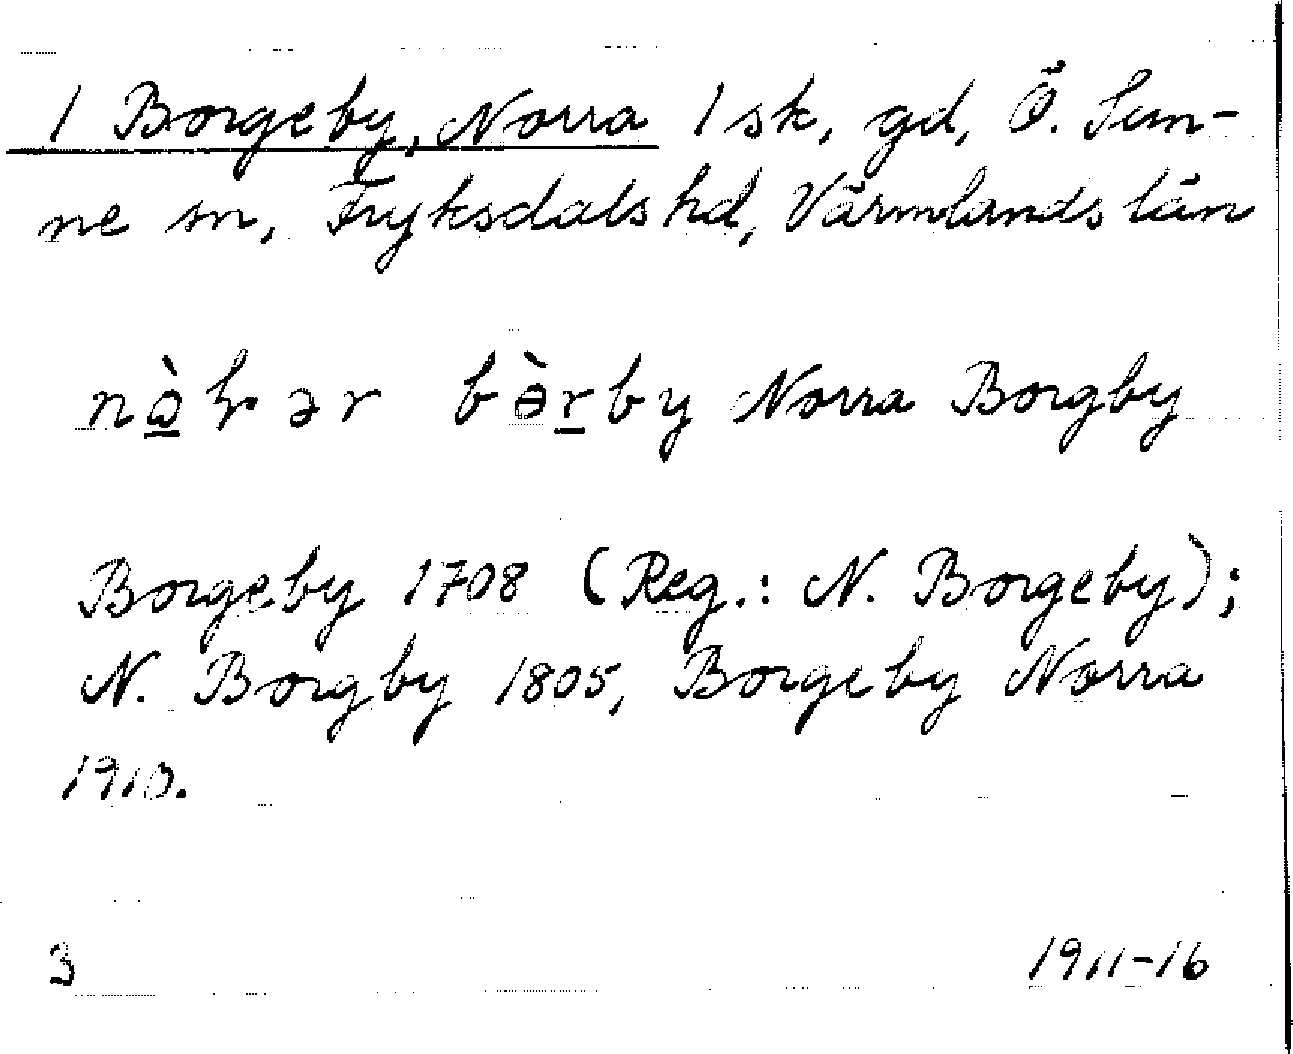 1 Borgeby, Norra 1 sk, gd, Ö. Sun-
ne sn, Fryksdals hd, Värmlands län
Norra Borgby
Borgeby 1708 (Reg.: N. Borgeby);
N. Borgby 1805, Borgeby Norra
1910.
3 1911-16